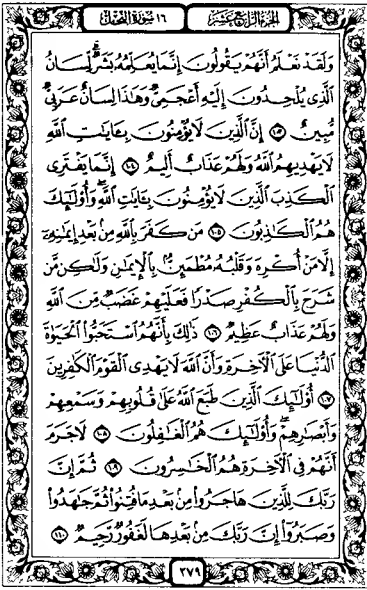 الجُزْءُ الرَّابِعَ عَشَرَ
١٦ سُورَةُ النَّحْلِ
وَلَقَدْ نَعْلَمُ أَنَّهُمْ يَقُولُونَ إِنَّمَا يُعَلِّمُهُۥ بَشَرٌ ۗ لِّسَانُ
ٱلَّذِى يُلْحِدُونَ إِلَيْهِ أَعْجَمِىٌّ وَهَٰذَا لِسَانٌ عَرَبِىٌّ
مُّبِينٌ ١٠٣ إِنَّ ٱلَّذِينَ لَا يُؤْمِنُونَ بِـَٔايَٰتِ ٱللَّهِ
لَا يَهْدِيهِمُ ٱللَّهُ وَلَهُمْ عَذَابٌ أَلِيمٌ ١٠٤ إِنَّمَا يَفْتَرِى
ٱلْكَذِبَ ٱلَّذِينَ لَا يُؤْمِنُونَ بِـَٔايَٰتِ ٱللَّهِ ۖ وَأُو۟لَٰٓئِكَ
هُمُ ٱلْكَٰذِبُونَ ١٠٥ مَن كَفَرَ بِٱللَّهِ مِنۢ بَعْدِ إِيمَٰنِهِۦٓ
إِلَّا مَنْ أُكْرِهَ وَقَلْبُهُۥ مُطْمَئِنٌّۢ بِٱلْإِيمَٰنِ وَلَٰكِن مَّن
شَرَحَ بِٱلْكُفْرِ صَدْرًا فَعَلَيْهِمْ غَضَبٌ مِّنَ ٱللَّهِ
وَلَهُمْ عَذَابٌ عَظِيمٌ ١٠٦ ذَٰلِكَ بِأَنَّهُمُ ٱسْتَحَبُّوا۟ ٱلْحَيَوٰةَ
ٱلدُّنْيَا عَلَى ٱلْـَٔاخِرَةِ وَأَنَّ ٱللَّهَ لَا يَهْدِى ٱلْقَوْمَ ٱلْكَٰفِرِينَ
١٠٧ أُو۟لَٰٓئِكَ ٱلَّذِينَ طَبَعَ ٱللَّهُ عَلَىٰ قُلُوبِهِمْ وَسَمْعِهِمْ
وَأَبْصَٰرِهِمْ ۖ وَأُو۟لَٰٓئِكَ هُمُ ٱلْغَٰفِلُونَ ١٠٨ لَا جَرَمَ
أَنَّهُمْ فِى ٱلْـَٔاخِرَةِ هُمُ ٱلْخَٰسِرُونَ ١٠٩ ثُمَّ إِنَّ
رَبَّكَ لِلَّذِينَ هَاجَرُوا۟ مِنۢ بَعْدِ مَا فُتِنُوا۟ ثُمَّ جَٰهَدُوا۟
وَصَبَرُوٓا۟ إِنَّ رَبَّكَ مِنۢ بَعْدِهَا لَغَفُورٌ رَّحِيمٌ ١١٠
٢٧٩